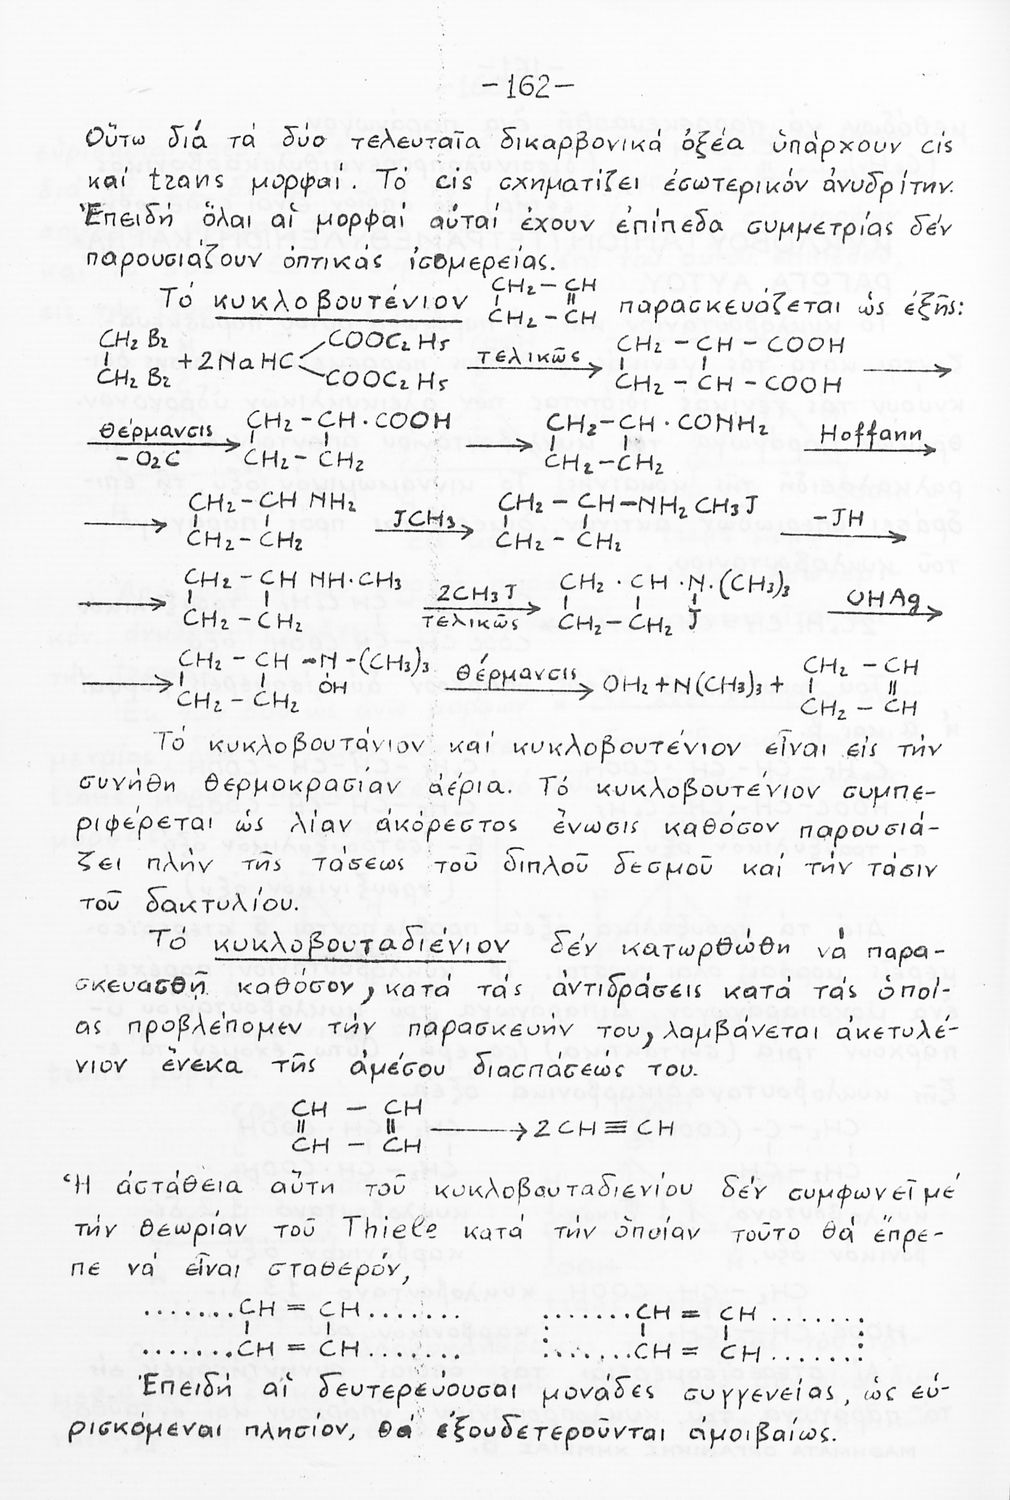 -162-
Οὕτω διά τά δύο τελευταῖα δικαρβονικά ὀξέα ὑπάρχουν cis
καί trans μορφαί. Τό cis σχηματίζει ἐσωτερικόν ἀνυδρίτην.
Ἐπειδή ὅλαι αἱ μορφαί αὗταί ἔχουν ἐπίπεδα συμμετρίας δέν
παρουσιάζουν ὀπτικας ἰσομερείας.
Τό κυκλοβουτένιον CH₂ – CH παρασκευάζεται ὡς ἑξῆς:
CH₂ – CH
CH₂ Br COOC₂H₅ CH₂ – CH – COOH
+ 2NaHC τελικῶς
CH₂ Br COOC₂H₅ CH₂ – CH – COOH
θέρμανσις CH₂ – CH · COOH CH₂ – CH · CONH₂ Hoffann
– O₂C CH₂ – CH₂ CH₂ – CH₂
CH₂ – CH NH₂ JCH₃ CH₂ – CH – NH₂ CH₃ J – JH
CH₂ – CH₂ CH₂ – CH₂
CH₂ – CH NH·CH₃ 2CH₃J CH₂ · CH · N · (CH₃)₃ OHAg
CH₂ – CH₂ τελικῶς CH₂ – CH₂ J
CH₂ – CH – N – (CH₃)₃ θέρμανσις OH₂ + N(CH₃)₃ + CH₂ – CH
CH₂ – CH₂ OH CH₂ – CH
Τό κυκλοβουτάνιον καί κυκλοβουτένιον εἶναι εἰς τήν
συνήθη θερμοκρασίαν ἀέρια. Τό κυκλοβουτένιον συμπε-
ριφέρεται ὡς λίαν ἀκόρεστος ἕνωσις καθόσον παρουσιά-
ζει πλήν τῆς τάσεως τοῦ διπλοῦ δεσμοῦ καί τήν τάσιν
τοῦ δακτυλίου.
Τό κυκλοβουταδιένιον δέν κατωρθώθη νά παρα-
σκευασθῇ καθόσον, κατά τάς ἀντιδράσεις κατά τάς ὁποί-
ας προβλέπομεν τήν παρασκευήν του, λαμβάνεται ἀκετυλέ-
νιον ἕνεκα τῆς ἀμέσου διασπάσεώς του.
CH – CH
→ 2 CH ≡ CH
CH – CH
Ἡ ἀστάθεια αὕτη τοῦ κυκλοβουταδιενίου δέν συμφωνεῖ μέ
τήν θεωρίαν τοῦ Thiele κατά τήν ὁποίαν τοῦτο θά ἔπρε-
πε νά εἶναι σταθερόν,
.......CH = CH....... .......CH = CH.......
.......CH = CH....... .......CH = CH.......
Ἐπειδή αἱ δευτερεύουσαι μονάδες συγγενείας, ὡς εὑ-
ρισκόμεναι πλησίον, θά ἐξουδετεροῦνται ἀμοιβαίως.